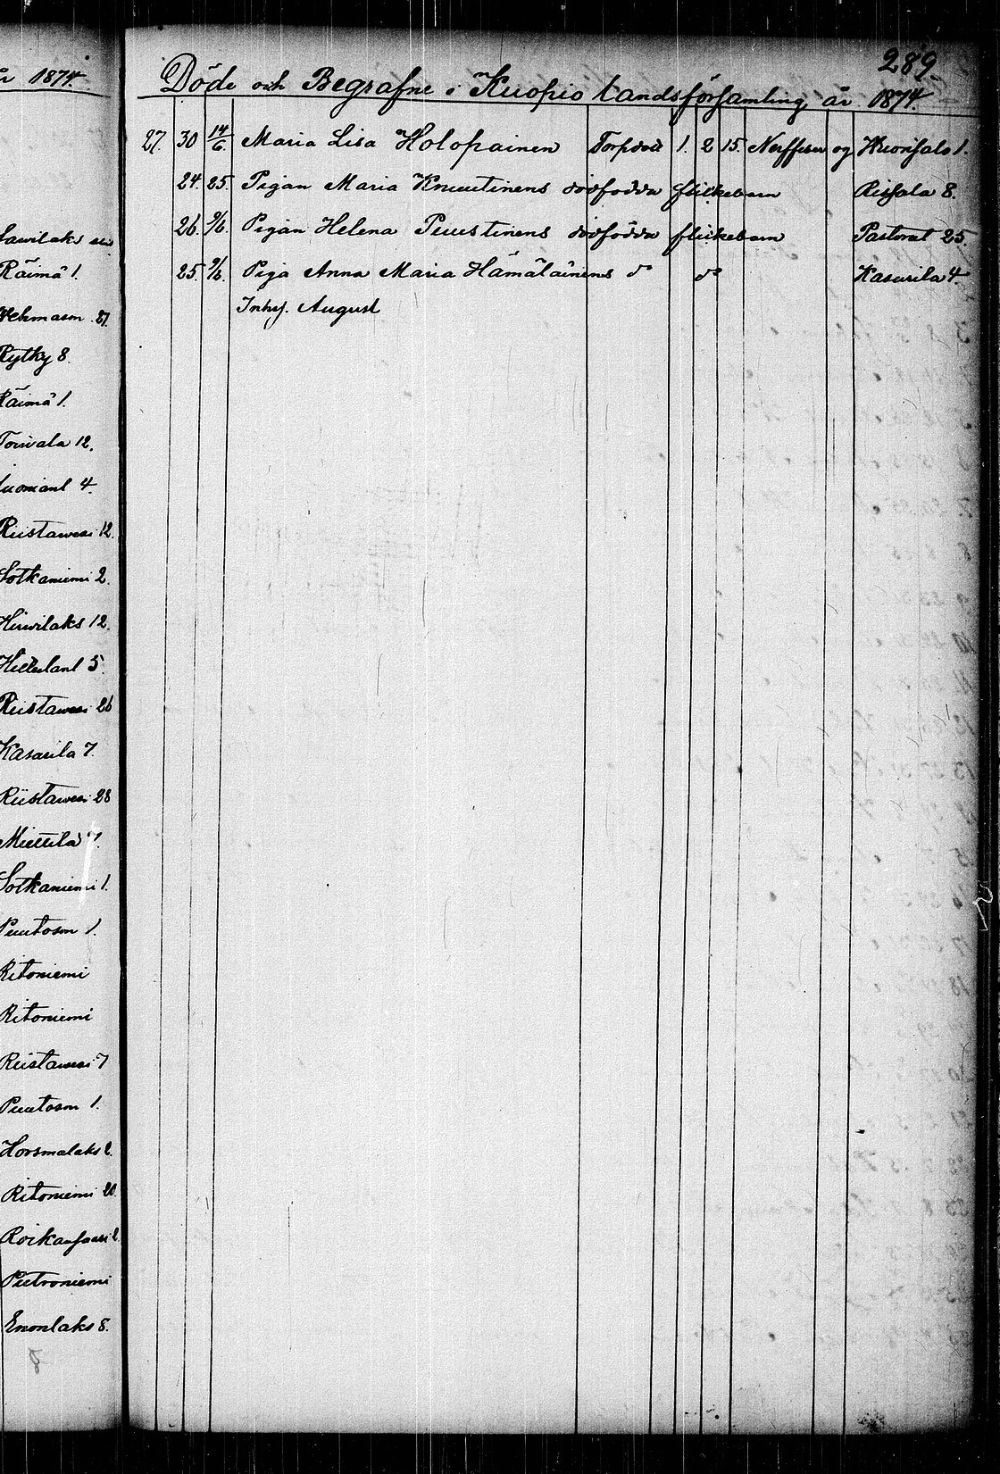 år 1874.
Sawilaks
Räimä 1.
Wehmasm. 27.
Rytky 8.
Räimä 1.
Toivala 12.
4.
Riistawesi 12.
Sotkaniemi 2.
Hirwilaks 12.
5.
Riistawesi 26
Kasurila 7.
Riistawesi 28
Miettilä 7.
Sotkaniemi 1.
Puutosm 1.
Ritoniemi
Ritoniemi
Riistawesi 7
Puutosm 1.
Horsmalaks 2.
Ritoniemi 20.
2.
Pietroniemi
Enonlaks 8.
289.
Döde och Begrafne i Kuopio landsförsamling år 1874.
27. 30 14/6. Maria Lisa Holopainen Torpdott 1. 2 15. Nerffeber og Kuorifalo 1.
24. 25. Pigan Maria Knuutinens dödfödda flickebarn Rissala 8.
26. 9/6. Pigan Helena Puustinens dödfödda flickebarn Pastorat 25.
25. 9/6. Piga Anna Maria Hämäläinens do do Kasurila 4.
Inhy. August